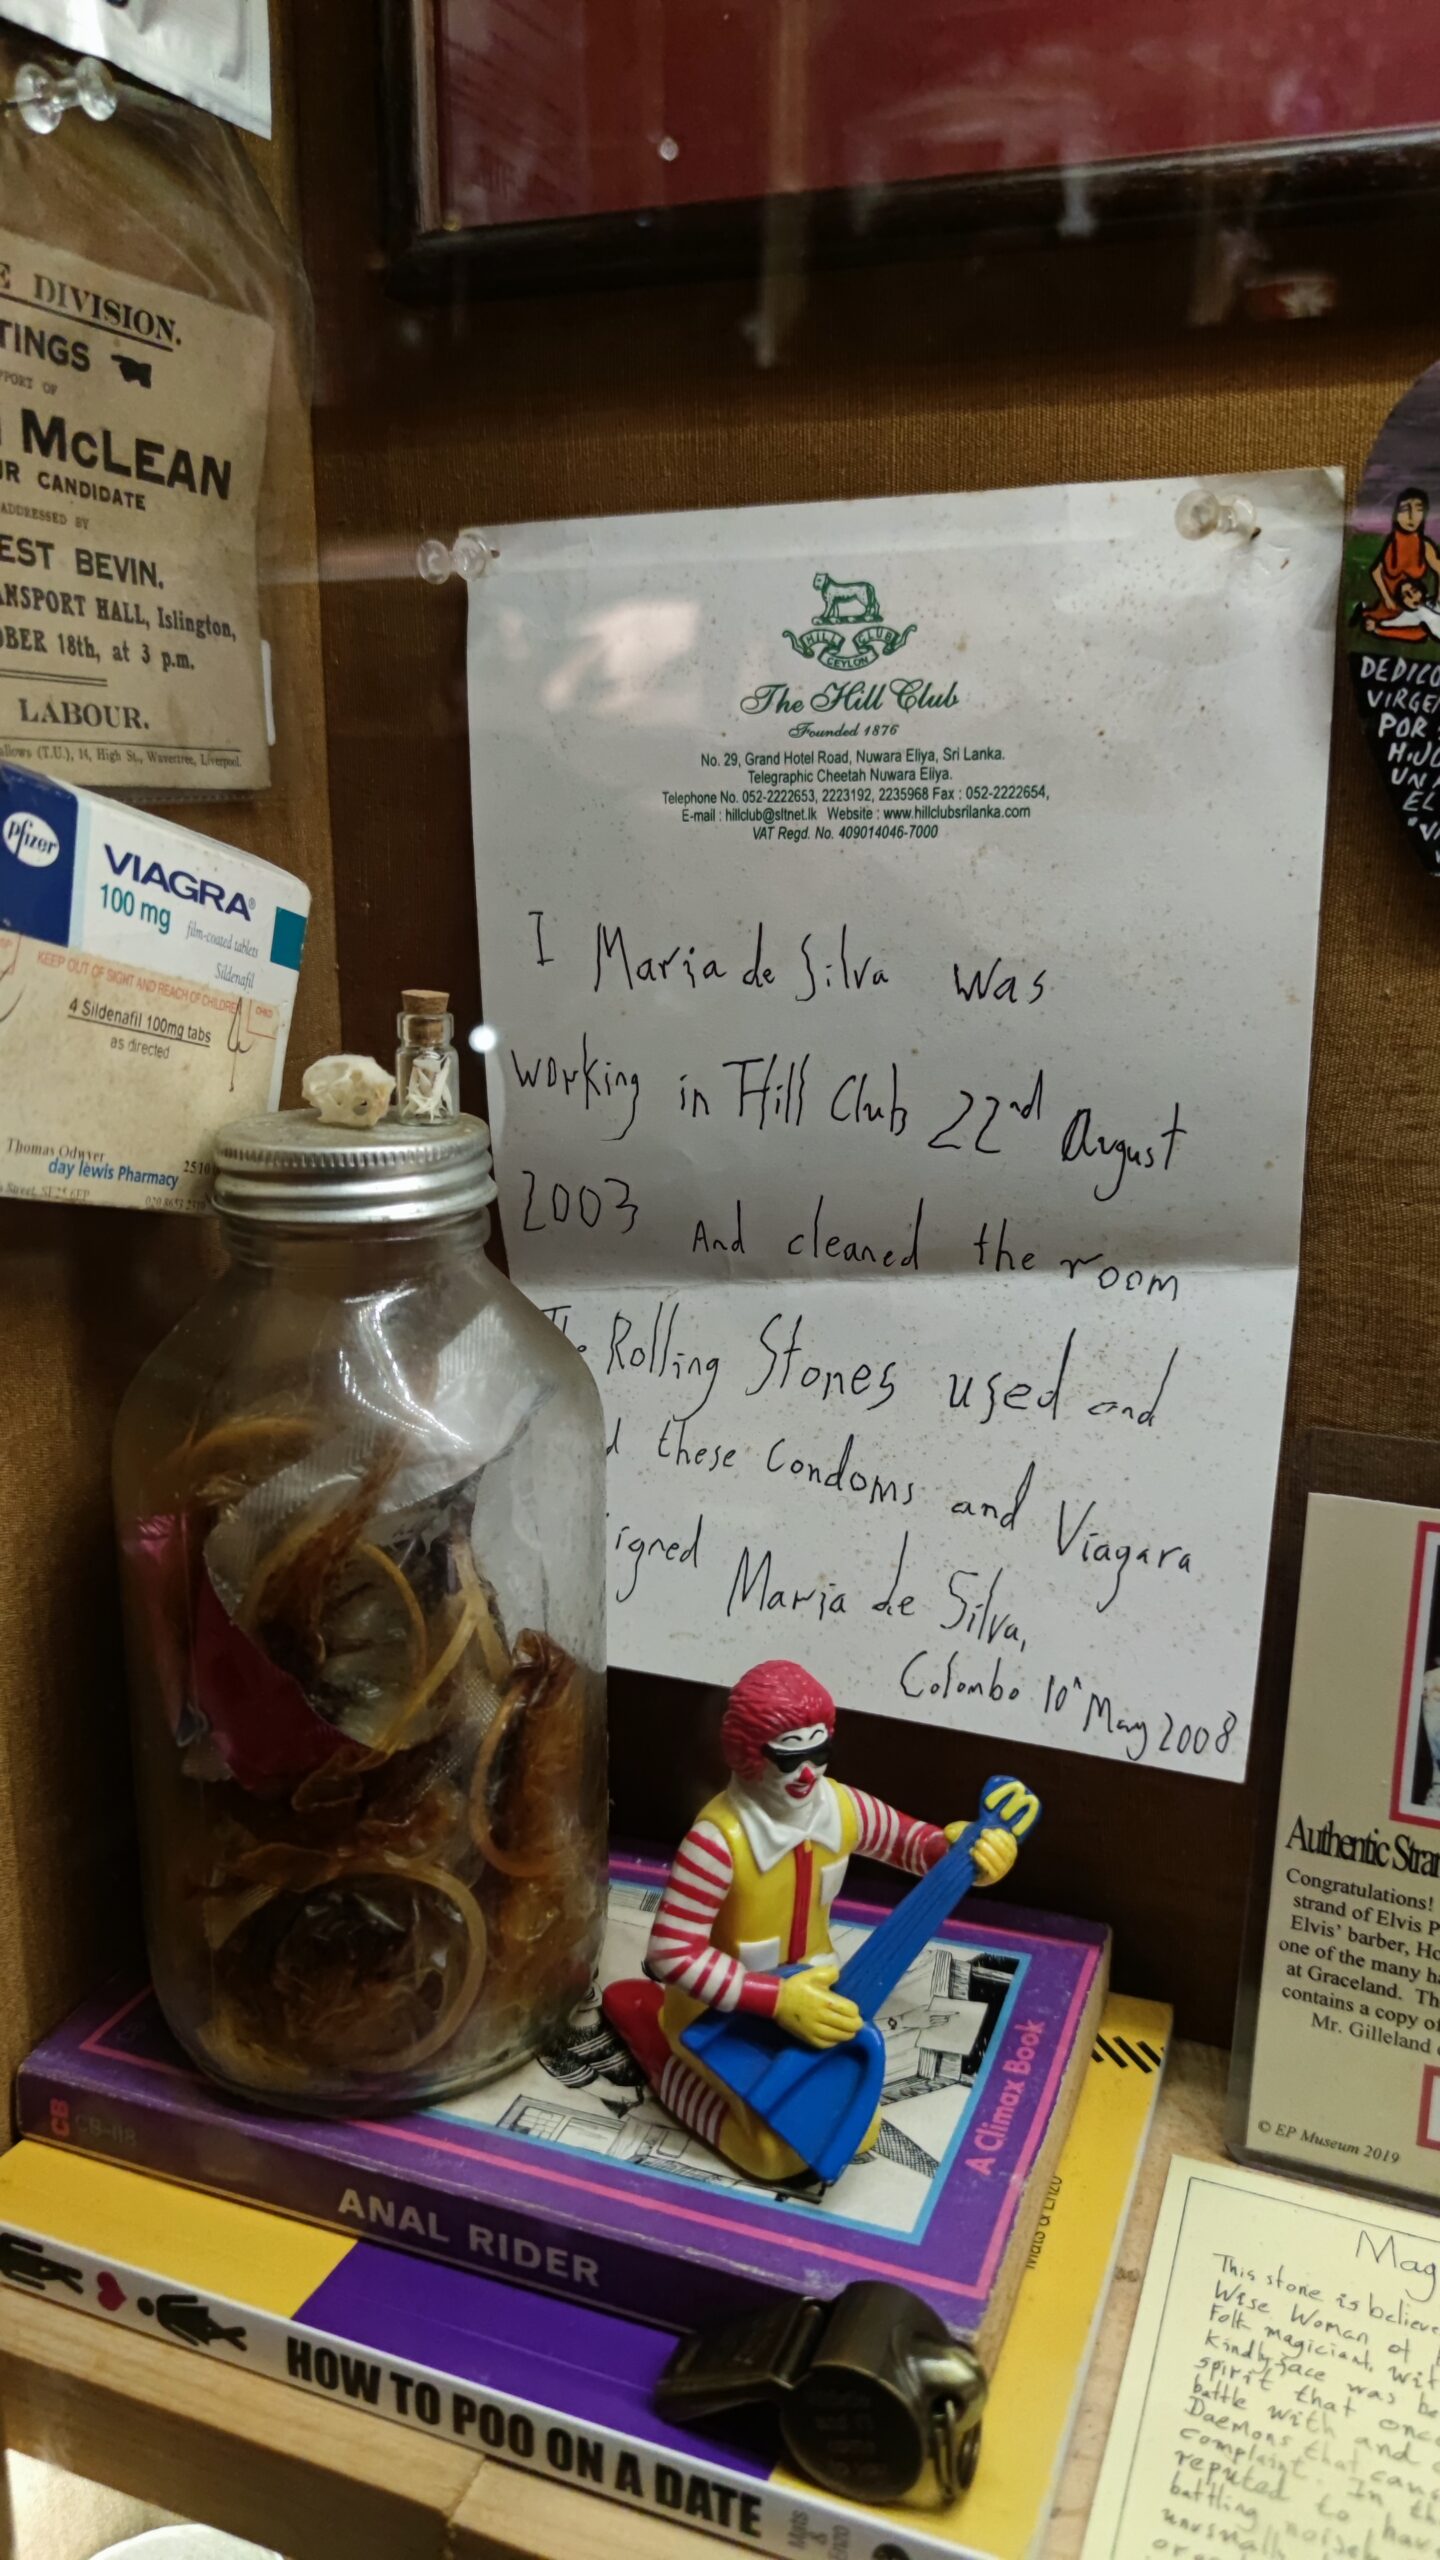 DIVISION.
McLEAN
CANDIDATE
ADDRESSED BY
BEVIN.
HALL, Islington,
18th, at 3 p.m.
LABOUR.
(T.U.), 14, High St., Wavertree, Liverpool.
Pfizer
VIAGRA®
100 mg
film-coated tablets
Sildenafil
KEEP OUT OF SIGHT AND REACH OF CHILDREN
4 Sildenafil 100mg tabs
as directed
Thomas Odwyer
day lewis Pharmacy
HILL CLUB
CEYLON
The Hill Club
Founded 1876
No. 29, Grand Hotel Road, Nuwara Eliya, Sri Lanka.
Telegraphic Cheetah Nuwara Eliya.
Telephone No. 052-2222653, 2223192, 2235968 Fax : 052-2222654,
E-mail : hillclub@sltnet.lk Website : www.hillclubsrilanka.com
VAT Regd. No. 409014046-7000
I Maria de Silva was
working in Hill Club 22nd August
2003 And cleaned the room
Rolling Stones used and
these Condoms and Viagara
Maria de Silva,
Colombo 10 May 2008
DEDICO
POR
UN
EL
Authentic
Congratulations!
strand of Elvis
Elvis' barber,
one of the many
at Graceland.
contains a copy of
Mr. Gilleland
© EP Museum 2019
A Climax Book
CB CB-118
ANAL RIDER
HOW TO POO ON A DATE
Mats & Enzo
This stone is
Wise Woman of
Folk magician,
Kindly face was
spirit that
battle with and
Daemons that
complaint. In
reputed to have
battling